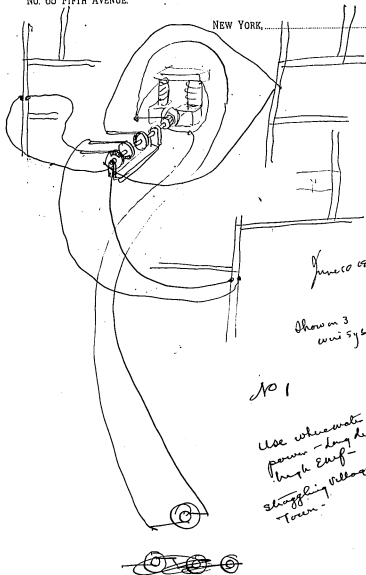 No. 65 FIFTH AVENUE.
NEW YORK,
June 10
Show on 3
wire sys
No 1
Use where water
power - long de
high EMF -
straggling Village
Town -